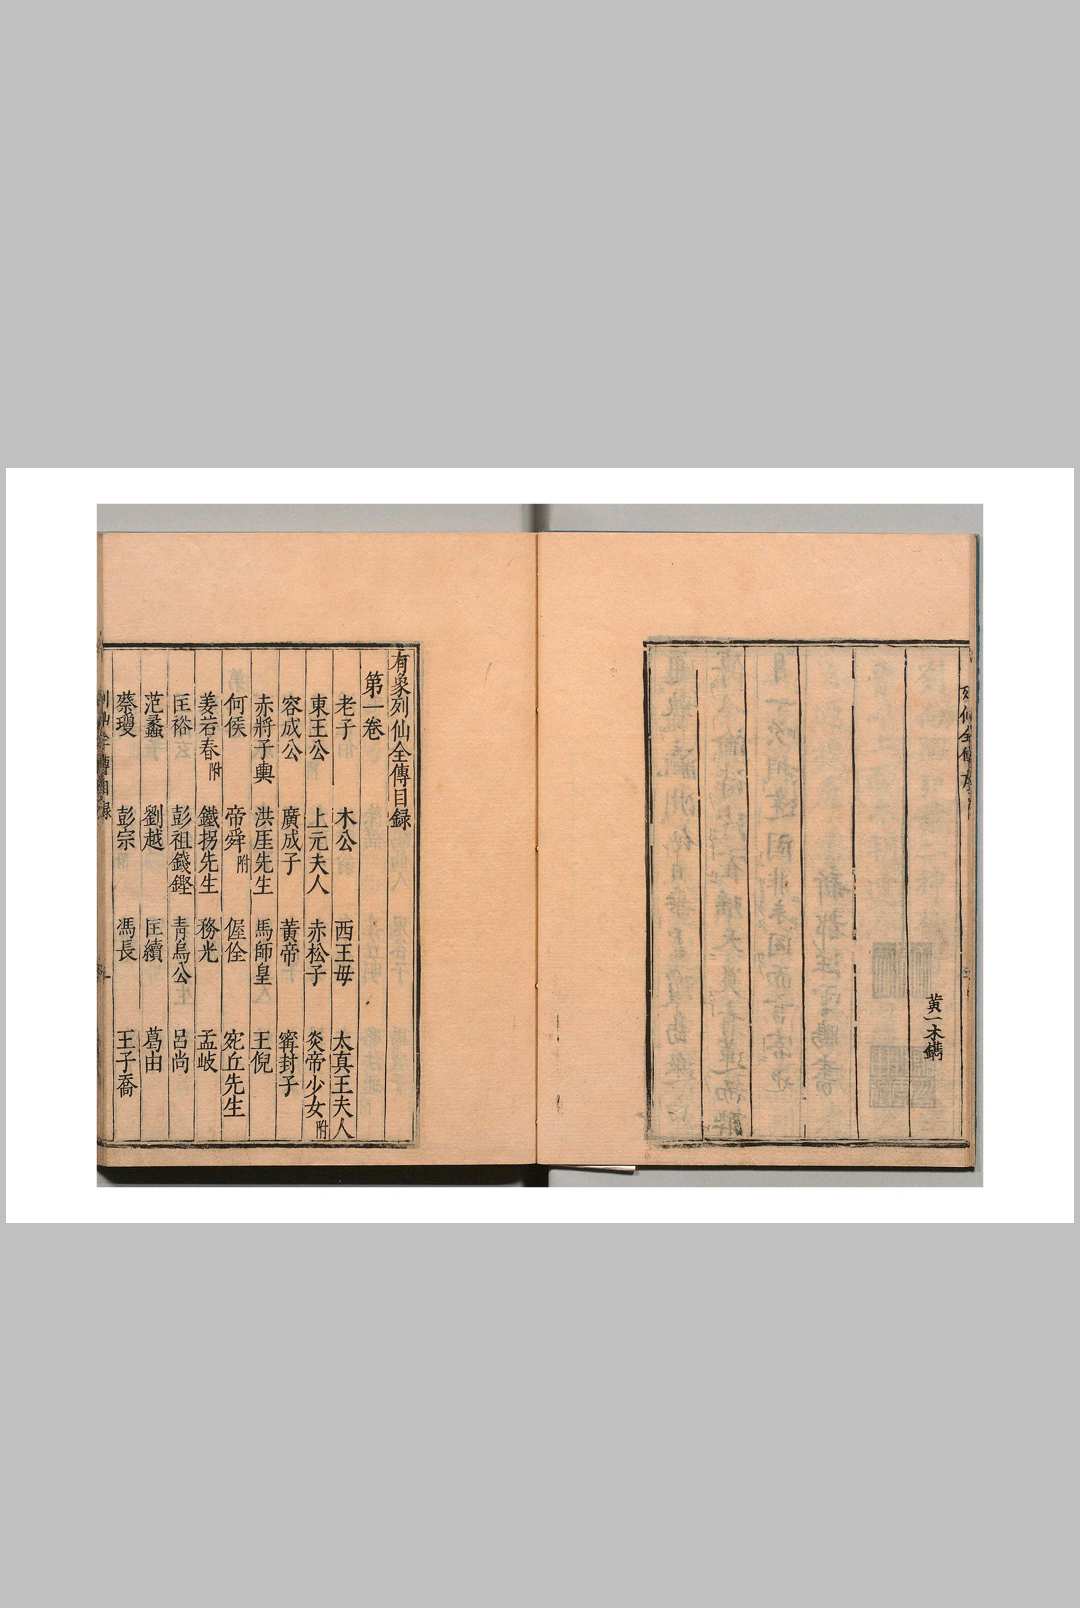 黄一木鐫
有象列仙全傳目録
第一卷
老子 木公 西王母 太真王夫人
東王公 上元夫人 赤松子 炎帝少女附
容成公 廣成子 黃帝 甯封子
赤將子輿 洪厓先生 馬師皇 王倪
何侯 帝舜附 偓佺 宛丘先生
姜若春附 鐵拐先生 務光 孟岐
匡裕 彭祖錢鏗 青烏公 呂尚
范蠡 劉越 匡續 葛由
蔡瓊 彭宗 馮長 王子喬